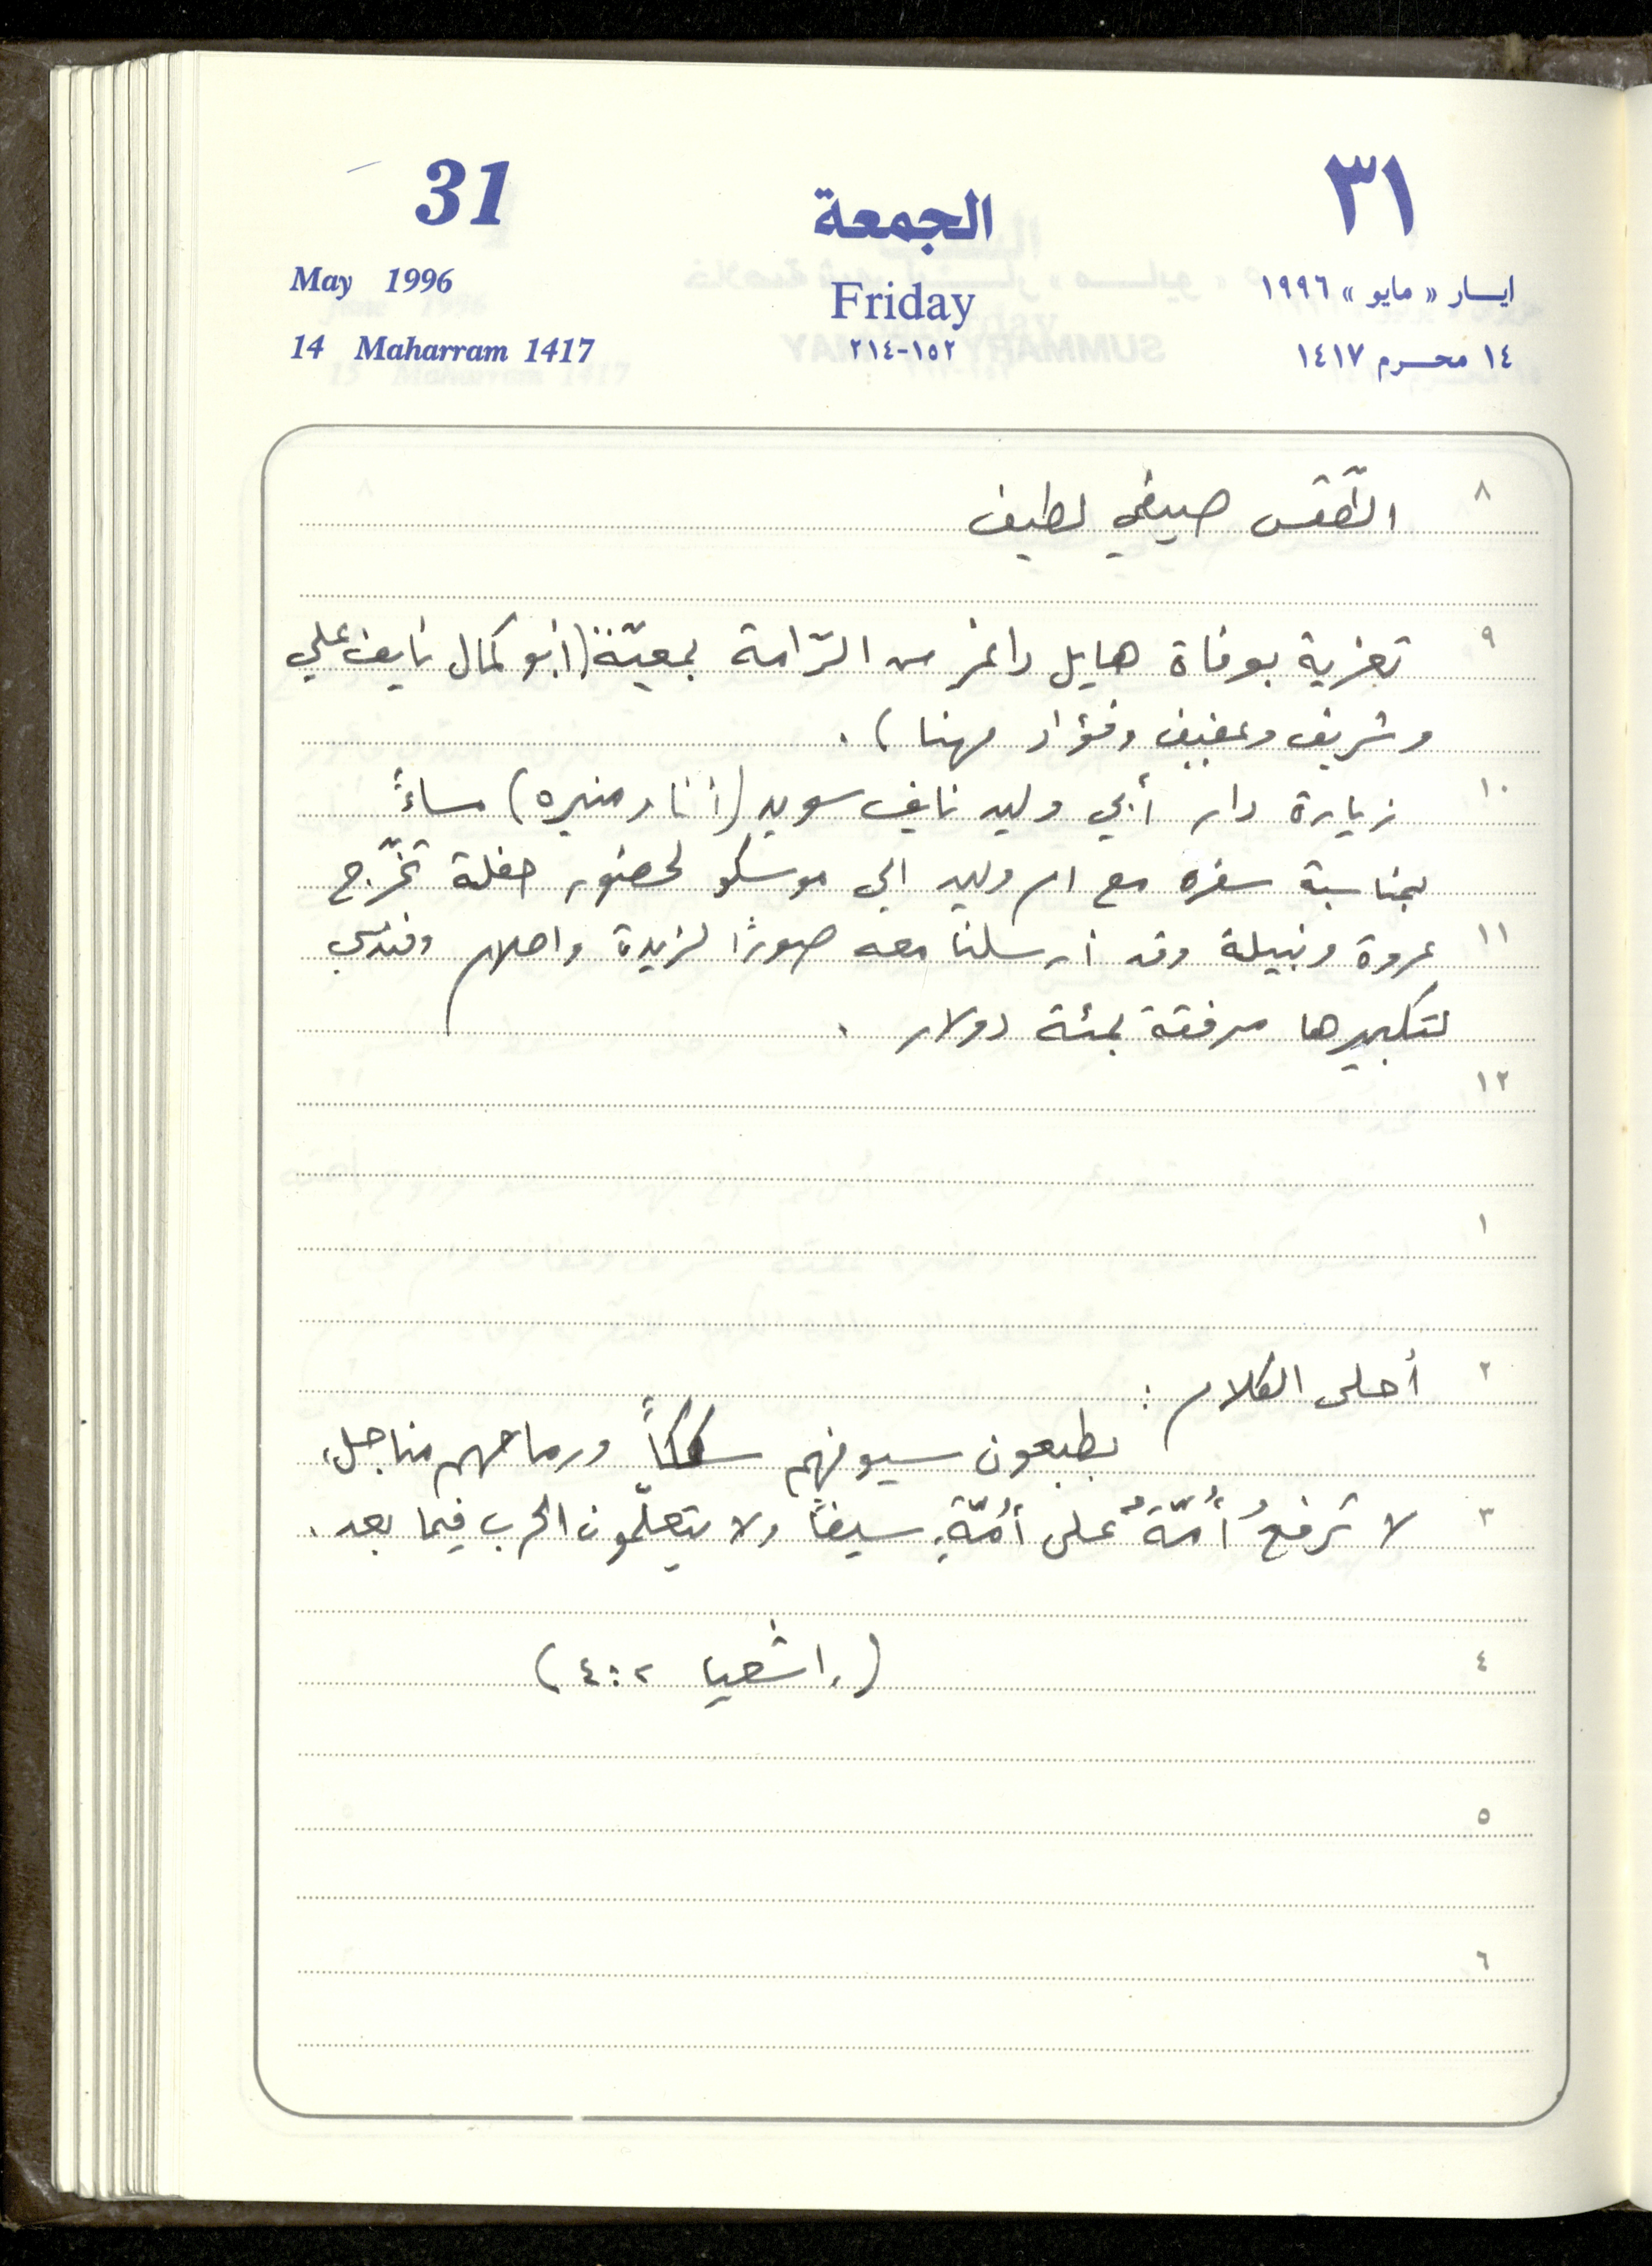 31
الجمعة
٣١
May 1996
Friday
ايسار « مايو » ١٩٩٦
14 Maharram 1417
١٥٢-٢١٤
١٤ محرم ١٤١٧
٨ الطّقس صيفي لطيف
٩ تعزية بوفاة هايل داغر من الرّامة بمعيّة: (أبو كمال نايف علي
وشريف وعفيف وفؤاد مهنا).
١٠ زيارة دار أبي وليد نايف سويد (أنا ومنيره) مساءً
بمناسبة سفره مع ام وليد الى موسكو لحضور حفلة تخرّج
١١ عروة ونبيلة وقد أرسلنا معه صورًا لزيدة واحلام
لتكبيرها مرفقة بمئة دولار.
١٢
١
٢ أحلى الكلام:
يطبعون سيوفهم سككاً ورماحهم مناجل،
٣ لا ترفعُ أُمّةٌ على أُمّةٍ سيفًا ولا يتعلّمون الحرب فيما بعد.
٤ (اشعيا ٢:٤)
٥
٦